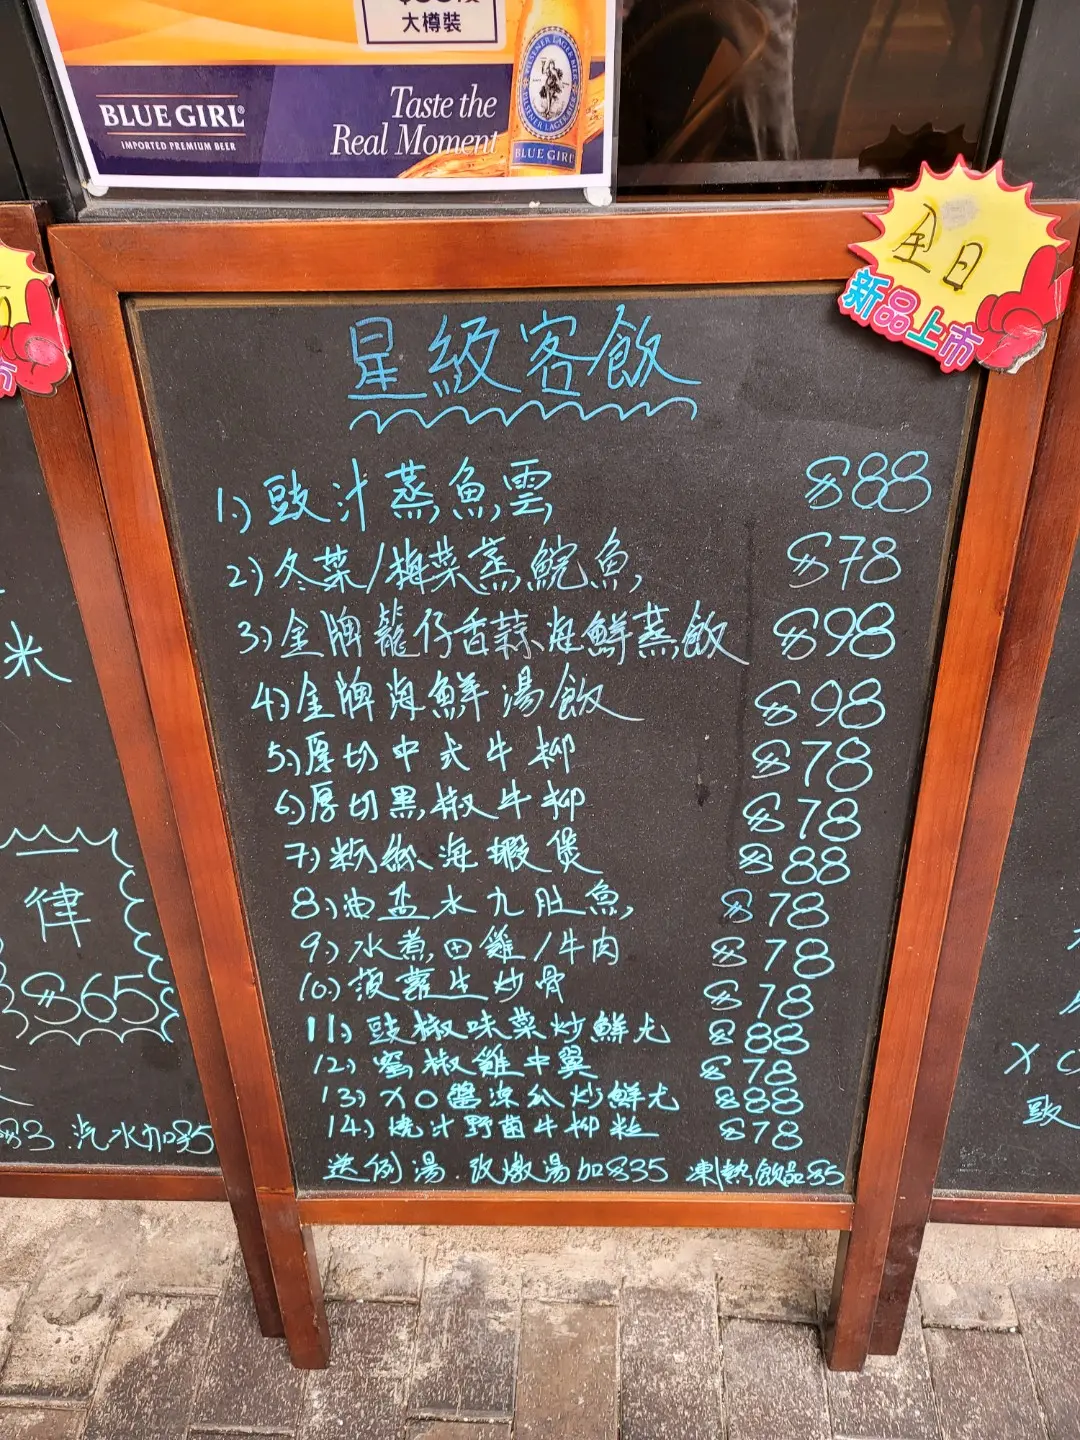 大樽裝
BLUE GIRL®
IMPORTED PREMIUM BEER
Taste the
Real Moment
PILSENER LAGER BIER
BLUE GIRL
全日
新品上市
星級客飯
1.) 豉汁蒸魚雲 $88
2.) 冬菜/梅菜蒸鯇魚 $78
3.) 金牌籠仔香蒜海鮮蒸飯 $98
4.) 金牌海鮮湯飯 $98
5.) 厚切中式牛柳 $78
6.) 厚切黑椒牛柳 $78
7.) 粉絲海蝦煲 $88
8.) 油盐水九肚魚 $78
9.) 水煮田雞/牛肉 $78
10.) 菠蘿生炒骨 $78
11.) 豉椒味菜炒鮮尤 $88
12.) 蜜椒雞中翼 $78
13.) XO醬涼瓜炒鮮尤 $88
14.) 燒汁野菌牛柳粒 $78
送例湯.改燉湯加$35 凍/熱飲品$5
米
律
$65
汽水加$5
XO
豉